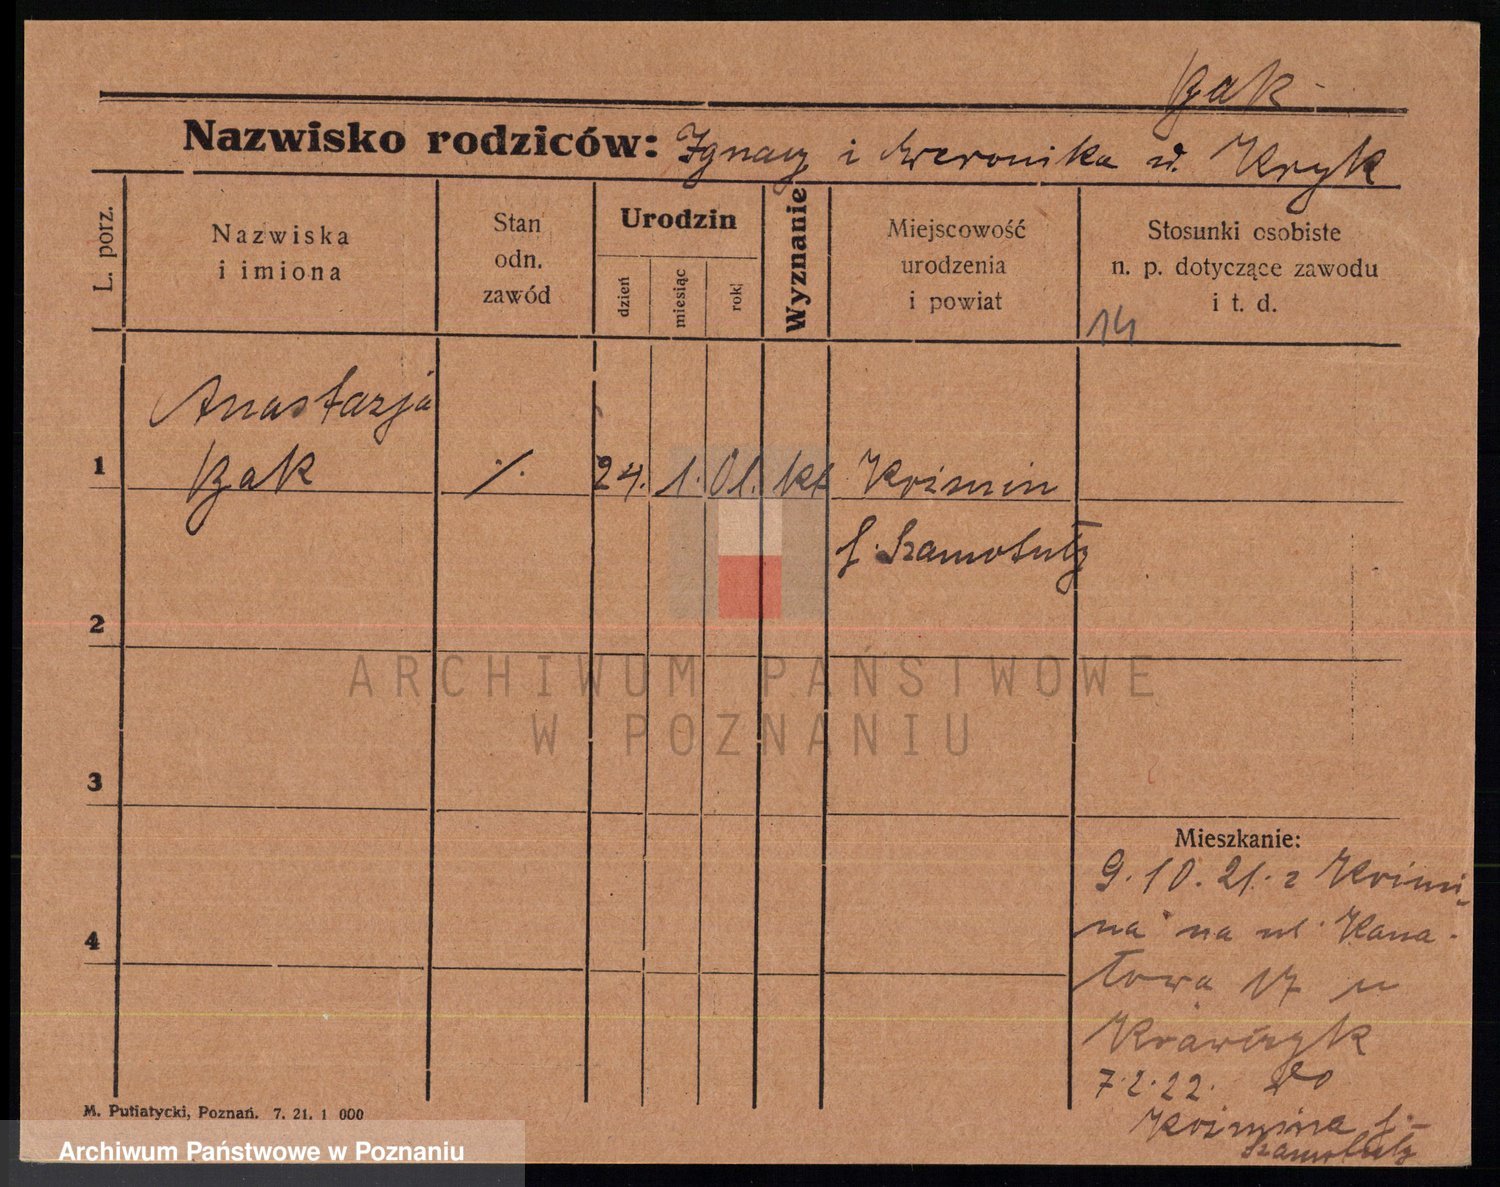 Bąk
Nazwisko rodziców: Ignacy i Weronika ur. Kryk
L. porz.
Nazwiska
i imiona
Stan
odn.
zawód
Urodzin
dzień
miesiąc
rok
Wyznanie
Miejscowość
urodzenia
i powiat
Stosunki osobiste
n. p. dotyczące zawodu
i t. d.
14
Anastazja
1 Bąk ./. 24. 1. 01. kt
Szamotuły
2
3
4
Mieszkanie:
9.10.21. z
na ul. Kana-
łowa 17 u
Krawczyk
7.2.22. do
Szamotuły
M. Putiatycki, Poznań. 7. 21. 1 000
ARCHIWUM PAŃSTWOWE
W POZNANIU
Archiwum Państwowe w Poznaniu